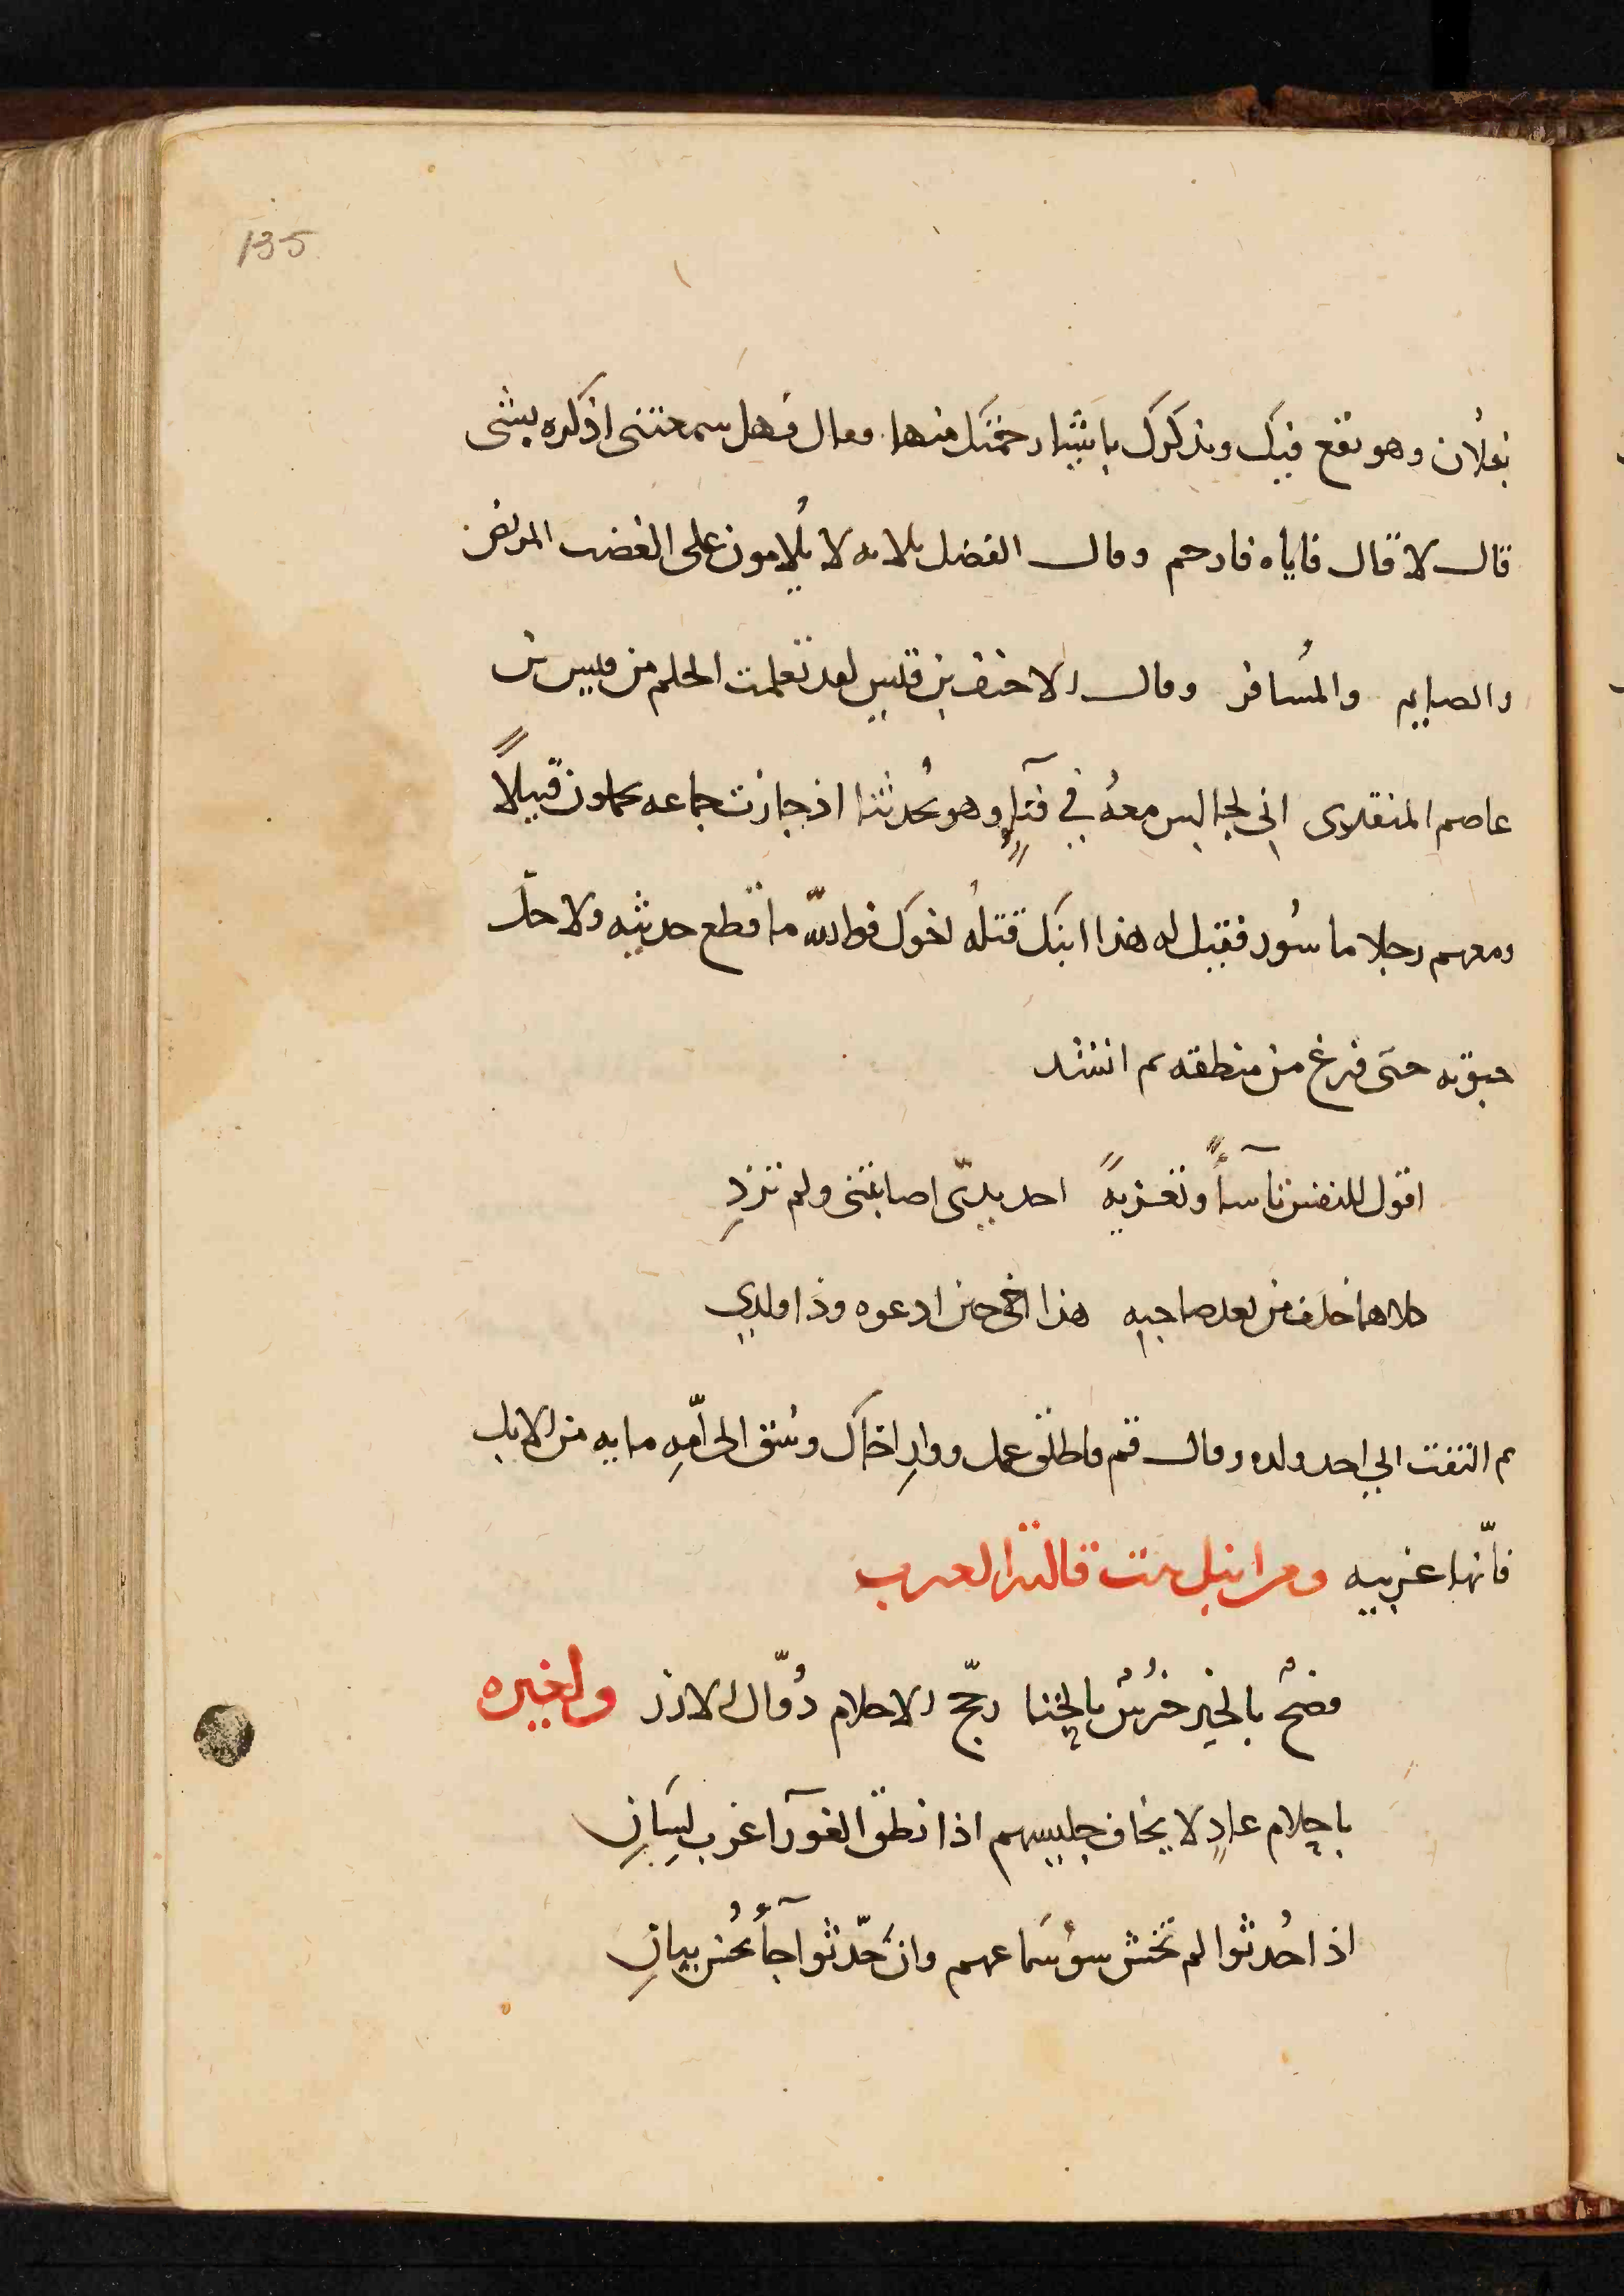 135
بفلان وهو يقع فيك ويذكرك باشيا رحمتك منها وقال فهل سمعتني اذكره بشي
قال لا قال فاياه فارحم وقال الفضل ثلاثه لا يُلامون على الغضب المريض
والصايم والمُسافر وقال الاحنف بن قيس لقد تعلمت الحلم من قيس بن
عاصم المنقري اني لجالس معهُ في فنآءٍ وهو يُحدثنا اذ جازت جماعه يحملون قتيلاً
ومعهم رجلا ماسُور فقيل له هذا ابنك قتلهُ اخوك فوالله ما قطع حديثه ولا حلّ
حبوته حتى فرغ من منطقه ثم انشد
اقول للنفس تآساءً وتعزيةً احد يديّ اصابتني ولم تردِ
كلاهما خلف من بعد صاحبه هذا اخي حين ادعوه وذا ولدي
ثم التفت الى احد ولده وقال قم فاطلق عمك ووارِ اخاك وسُق الى أمّهِ مايه من الابل
فأنّها غريبه ومن انبل بيت قالته العرب
فصحٌ بالخير خُرسٌ بالخنا رجّح الاحلام ذُوّال الازر ولغيره
باحلام عادٍ لا يخاف جليسهم اذا نطق العورآ غرب لسَانِ
اذا حُدثوا لم تخش سوُ سَماعهم وان حَدّثوا جآءُ بحسن بيانِ